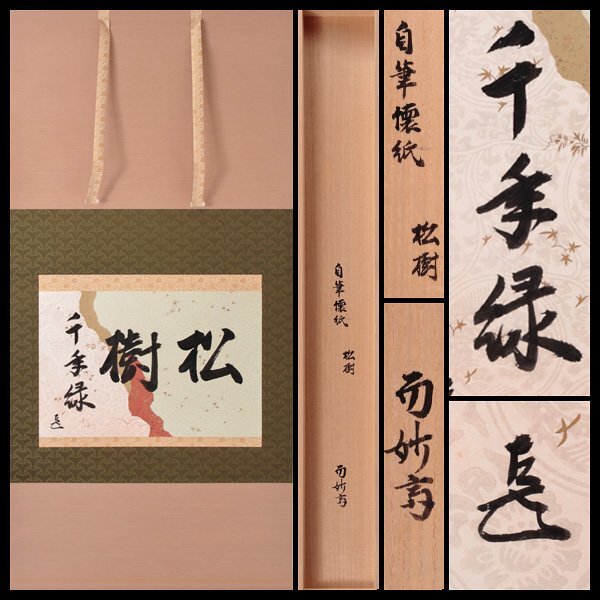 松
樹
千年緑
自筆懐紙
松樹
而妙斎
自筆懐紙
松樹
而妙斎
千年緑